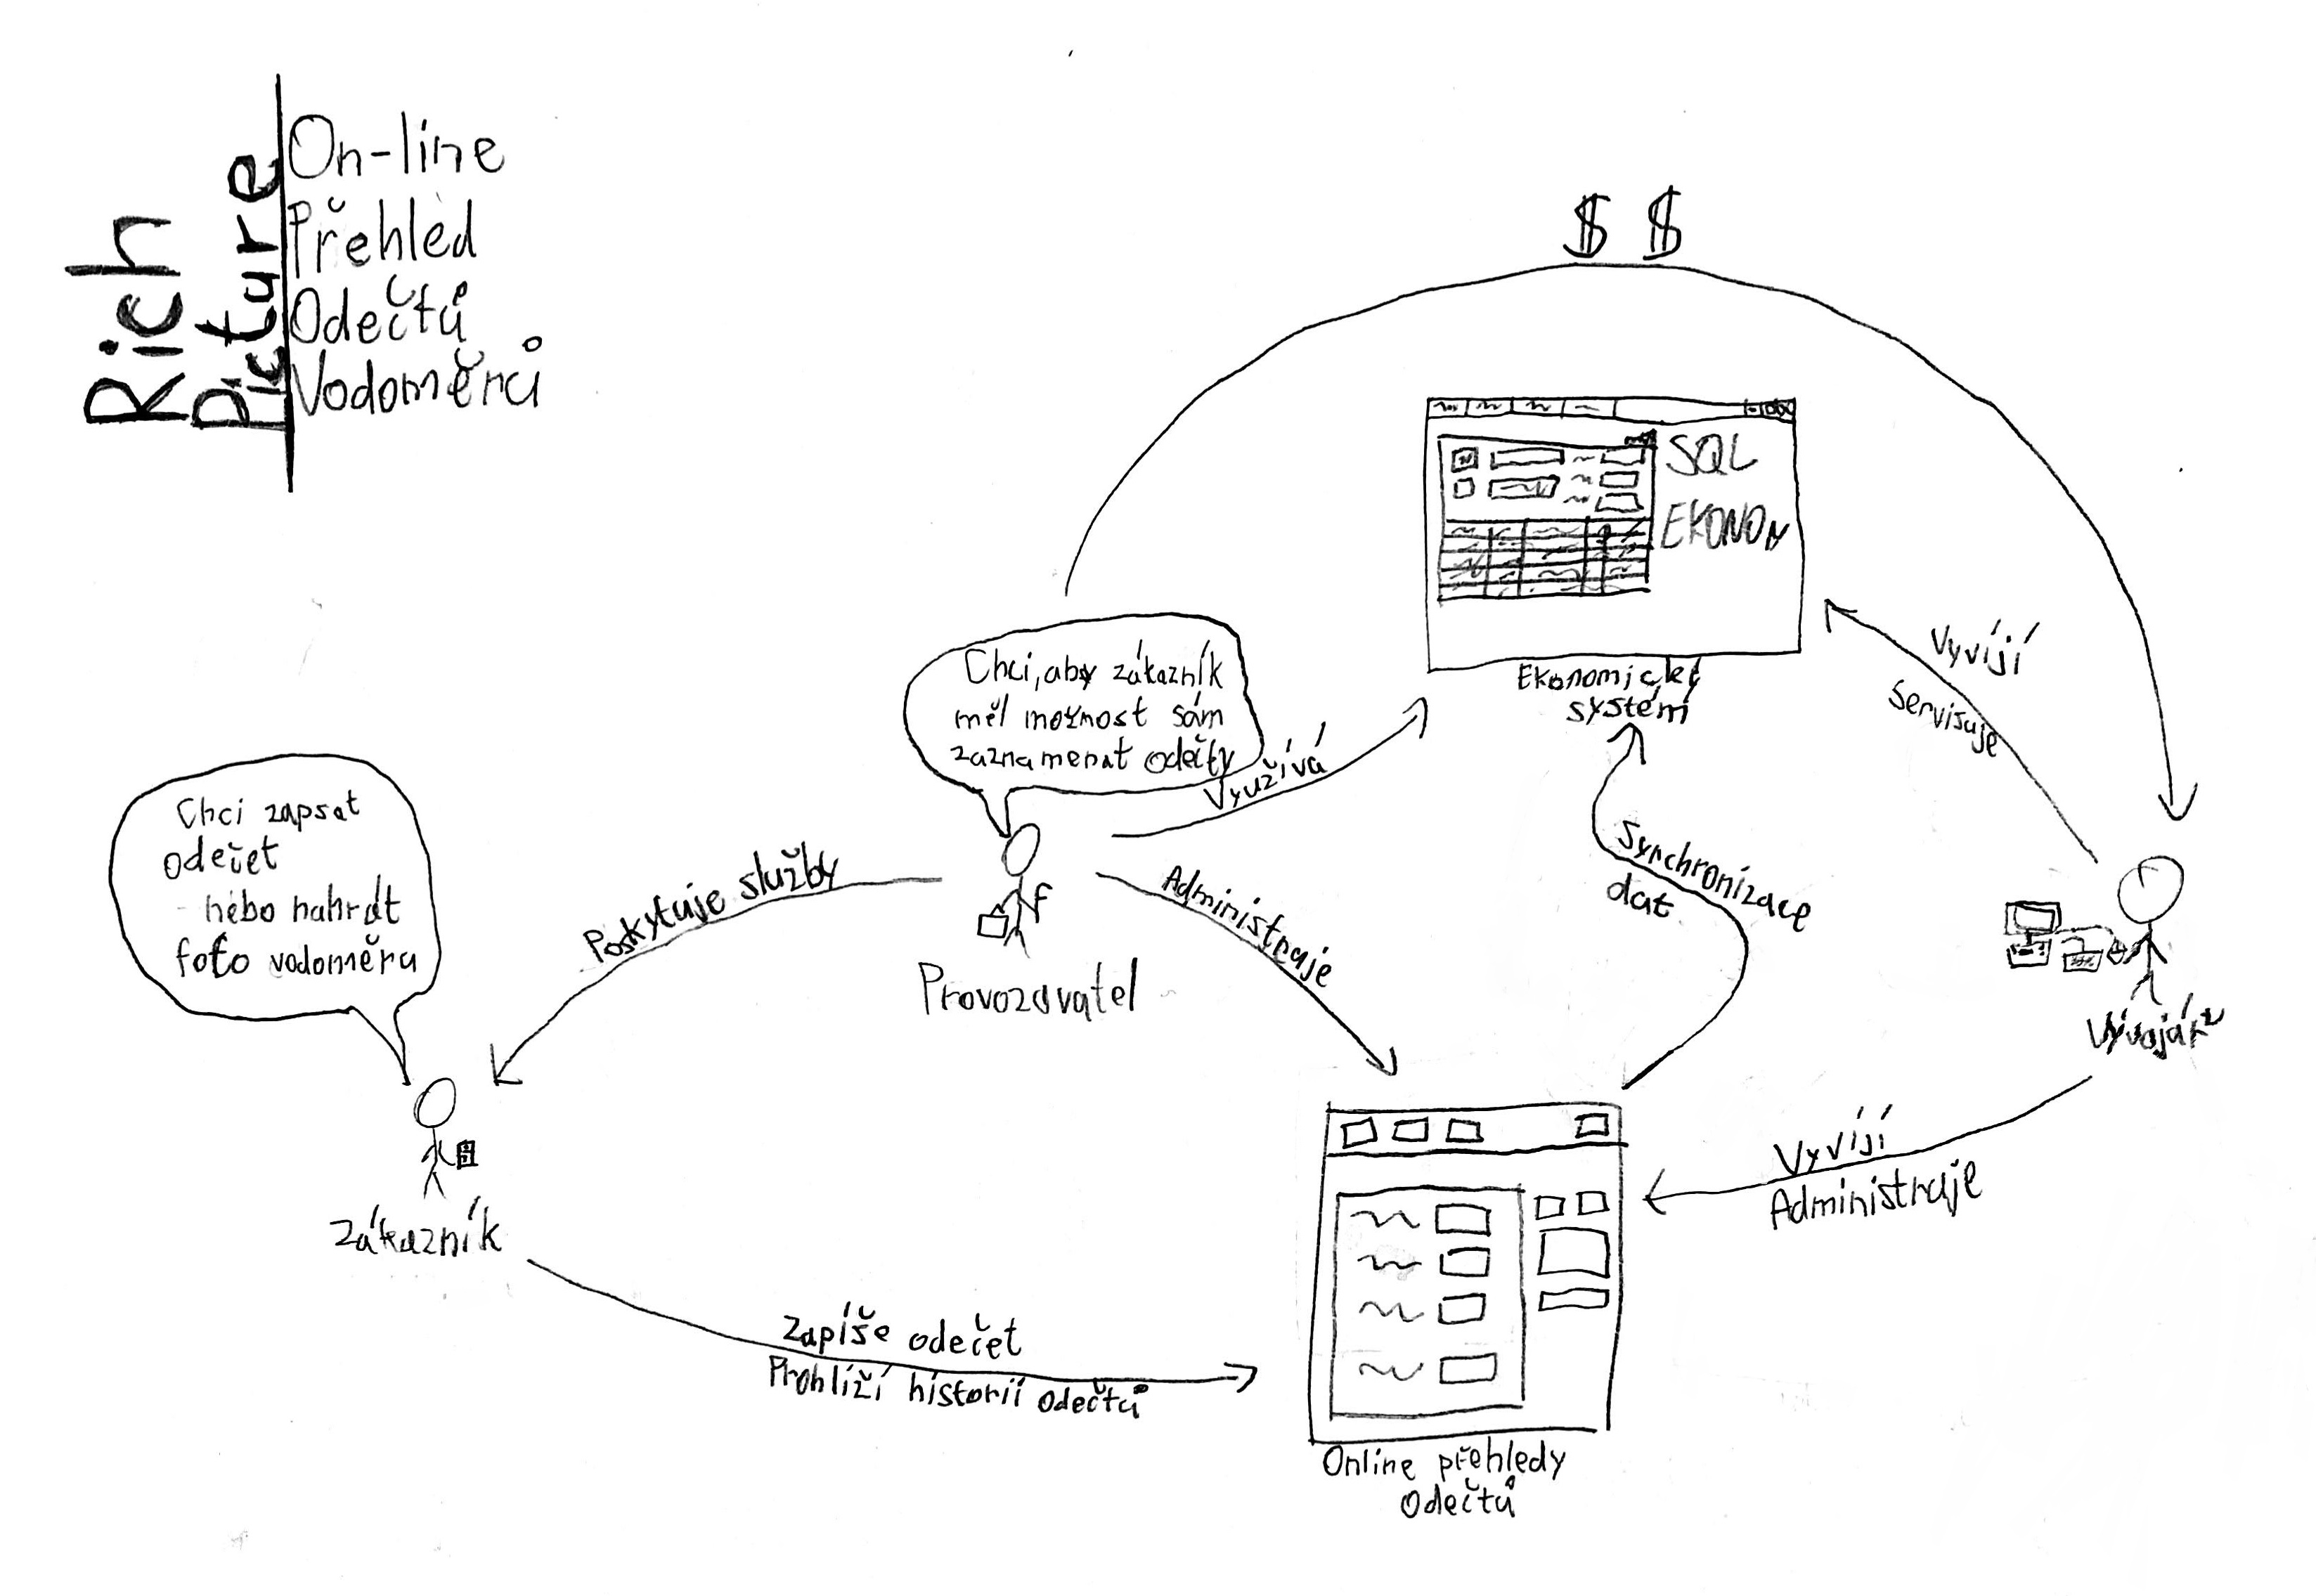 Rich
Picture
On-line
Přehled
Odečtů
Vodoměrů
$ $
SQL
EKONOM
Ekonomický
systém
Vyvíjí
Servisuje
Chci, aby zákazník
měl možnost sám
zaznamenat odečty
Využívá
Chci zapsat
odečet
- nebo nahrát
foto vodoměru
Poskytuje služby
Administruje
Synchronizace
dat
Provozovatel
Vývojář
Zákazník
Vyvíjí
Administruje
Zapíše odečet
Prohlíží historii odečtů
Online přehledy
Odečtů